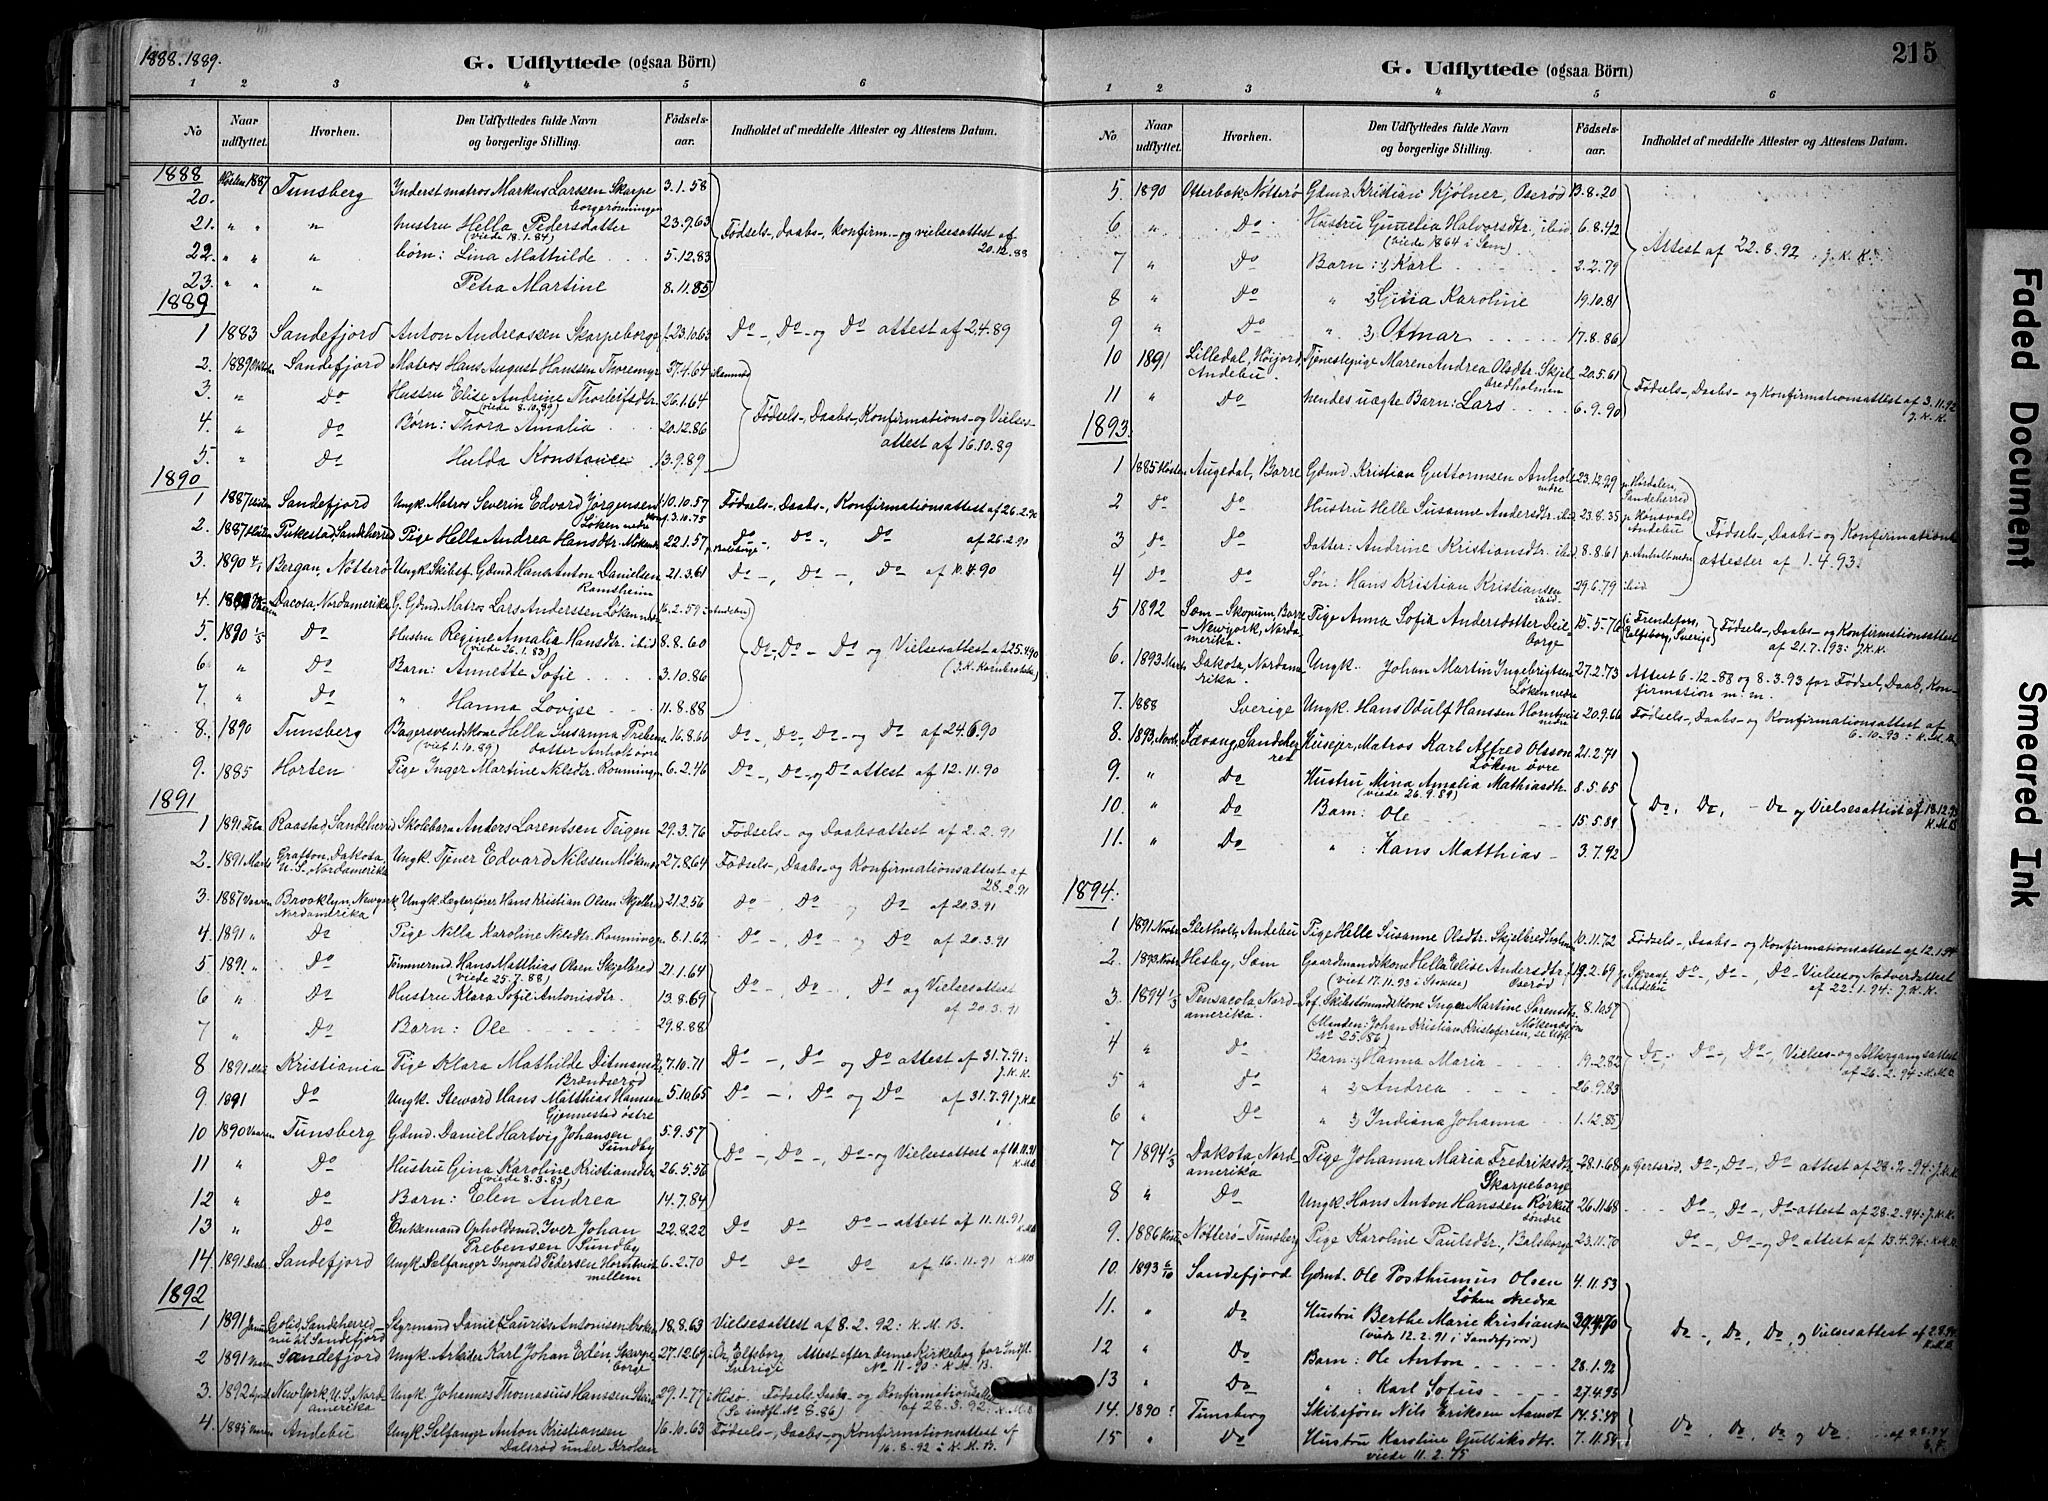 1888.1889.
G. Udflyttede (ogsaa Börn)
1 2 3 4 5 6
No Naar udflyttet. Hvorhen. Den Udflyttedes fulde Navn og borgerlige Stilling. Fødselsaar. Indholdet af meddelte Attester og Attestens Datum.
1888
20. Høsten 1887 Tunsberg Inderst matros Markus Larssen Skarpeborgerønningen 3.1.58
21. " " " hustru Hella Pedersdatter (viede 18.1.84) 23.9.63 Fødsels-, Daabs-, konfirm.- og vielsesattest af 20.12.88
22. " " " børn: Lina Mathilde 5.12.83
23. " " " Petra Martine 8.11.85
1889
1 1883 Sandefjord Anton Andreassen Skarpeborge 23.10.63 Do -, Do - og Do attest af 2.4.89
2. 1889 Sandefjord Matros Hans August Hanssen Thoremyr 4.64
3. " Do Hustru Elise Andrine Thorleifsdtr. (viede 8.10.89) 26.1.64 Fødsels-, Daabs-, Konfirmations- og Vielses-
4. " Do Børn: Thora Amalia 20.12.86 attest af 16.10.89
5. " Do Hulda Konstance 13.9.89
1890
1 1887 Sandefjord Ungk. Matros Severin Edvard Jørgensen Løken nedre 10.10.57 Fødsels-, Daabs-, Konfirmationsattest af 26.2.90
2. 1887 Pukestad, Sandeherred Pige Hella Andrea Hansdtr. 22.1.57 Do -, Do -, Do af 26.2.90
3. 1890 Bergan, Nötterö Ungk. Skibst. Gdmd. Hans Anton Danielsen Ramsheim 21.3.61 Do -, Do -, Do af 10.4.90
4. Dacota, Nordamerika G. Gdmd. Matros Lars Anderssen Løken nedre 16.2.59 Andebu
5. 1890 1/5 Do Hustru Regine Amalia Hansdtr. ibid (viede 26.1.83) 8.8.60 Do, Do - Do og Vielsesattest af 25.4.90
6 " Do Barn: Annette Sofie 3.10.86
7. " Do " Hanna Lovise 11.8.88
8. 1890 Tunsberg Bagersvendskone Hella Susanna Prebensdatter Anholt övre (viet 1.10.89) 16.8.66 Do -, Do -, Do - og Do af 24.6.90
9. 1885 Horten Pige Inger Martine Nilsdtr. Rønningen 6.2.46 Do -, Do -, og Do attest af 12.11.90
1891
1 1891 Feb. Raastad, Sandeherred Skolebarn Anders Lorentsen Teigen 29.3.76 Fødsels- og Daabsattest af 2.2.91
2. 1891 Marts Grafton, Dakota, U.S., Nordamerika Ungk. Tjener Edvard Nilssen 27.8.64 Fødsels-, Daabs- og Konfirmationsattest af 28.2.91
3. 1887 Vaaren Brooklyn, Newyork, Nordamerika Ungk. Hans Kristian Olsen Skjelbred 21.2.56 Do -, Do - og Do af 20.3.91
4 1891 " Do Pige Nilla Karoline Nilsdtr. Rønningen 8.1.62 Do -, Do - og Do af 20.3.91
5 1891 " Do Tømmermd. Hans Matthias Olsen Skjelbred (viede 25.7.88) 21.1.64
6 " Do Hustru Klara Sofie Antonisdtr. 13.8.69 Do -, Do -, Do og Vielsesattest af 20.3.91
7 " Do Barn: Ole 29.8.88
8 1891 Kristiania Pige Klara Mathilde Ditmansdtr. Brændserød 7.10.71 Do -, Do og Do attest af 31.7.91: J.K.K.
9. 1891 Do Ungk. Steward Hans Matthias Hansen Gjennestad östre 5.10.65 Do -, Do og Do af 31.7.91 J.K.K.
10 1890 Vaaren Tunsberg Gdmd. Daniel Hartvig Johansen Sundby 5.9.57
11 " Do Hustru Gina Karoline Kristiansdtr. (viede 8.3.83) 26.5.56 Do -, Do -, Do - og Vielsesattest af 10.11.91 K.M.B.
12 " Do Barn: Elen Andrea 14.7.84
13 " Do Enkemand Opholdsmd. Iver Johan Prebensen Sundby 22.8.22 Do Do Do - attest af 11.11.91 K.M.B.
14. 1891 Sandefjord Ungk. Selfanger Ingvald Pedersen Horntvet mellem 6.2.70 Do Do Do af 16.11.91 K.M.B.
1892
1 1891 Sandeherred nu til Sandefjord Styrmand Daniel Laurits Antonisen 18.8.63 Vielsesattest af 8.2.92: K.M.B.
2 1891 Vaaren Sandefjord Ungk. Arbeider Karl Johan Edén, Skarpeborge 27.12.69 Elfsborg Sverige Attest efter denne Kirkebog for Indfl. No 11-90: K.M.B.
3. 1892 New York, U.S. Nordamerika Ungk. Johannes Thomasius Hanssen 29.1.77 Fødsels-, Daabs- og Konfirmationsattest (Se indfl. No 8.86) af 28.3.92: K.M.B.
4. 1885 Andebu Ungk. Selfanger Anton Kristiansen Dalsrød under Kroken 16.10.63 Fødsels-, Daabs- og Konfirmationsattest af 16.8.92: K.M.B.
215
G. Udflyttede (ogsaa Börn)
1 2 3 4 5 6
No Naar udflyttet. Hvorhen. Den Udflyttedes fulde Navn og borgerlige Stilling. Fødselsaar. Indholdet af meddelte Attester og Attestens Datum.
5. 1890 Otterbæk, Nötterö Gdmd. Kristian Kjölner, Oserød 13.8.20
6 " Do Hustru Gunelia Halvorsdtr., ibid (viede 1864 i Sem) 6.8.42 Attest af 22.8.92: J.K.K.
7 " Do Barn: 1, Karl 2.2.79
8 " Do " 2, Gina Karoline 19.10.81
9 " Do " 3, Otmar 17.8.86
10 1891 Lilledal, Höijord, Andebu. Tjenestepige Maren Andrea Olsdtr. Skjelbredholmen 20.5.61 Fødsels-, Daabs- og Konfirmationsattest af 3.11.92 J.K.K.
11 " Do hendes uægte Barn: Lars 6.9.90
1893.
1 1885 Høsten Augedal, Borre Gdmd. Kristian Guttormsen Anholt nedre 23.12.29 Sandeherred
2 Do Do Hustru Helle Susanne Andersdtr. ibid 23.8.35 Andebu Fødsels-, Daabs- og Konfirmations-
3 Do Do Datter: Andrine Kristiansdtr. ibid 8.8.61 p. Anholt nedre attester af 1.4.93.
4 Do Do Søn: Hans Kristian Kristiansen ibid. 29.6.79 ibid
5 1892 Sem - Skopum, Borre - Newyork, Nordamerika. Pige Anna Sofie Andersdatter 15.5.76 Sverige Fødsels-, Daabs- og Konfirmationsattest af 21.7.93: J.K.K.
6. 1893 Marts Dakota, Nordamerika. Ungk. Johan Martin Ingebrigtsen Løken nedre 27.2.73 Attest 6.12.88 og 8.3.93 for Fødsel, Daab, Konfirmation m.m.
7. 1888 Sverige Ungk. Hans Odulf Hanssen Horntvet nedre 20.9.66 Fødsels-, Daabs- og Konfirmationsattest af 6.10.93: K.M.B.
8. 1893, Novbr. Sandeherred Huseier, Matros Karl Alfred Olsson Løken øvre 21.2.71
9. " Do Hustru Mina Amalia Mathiasdtr. (viede 26.9.89) 8.5.65
10. " Do Barn: Ole 15.5.89 Do, Do, - Do og Vielsesattest af 18.12.93 K.M.B.
11. " Do " : Hans Matthias 3.7.92
1894.
1 1891 Novbr. Sletholt, Andebu Pige Helle Susanne Olsdtr. Skjelbredholmen 10.11.72 Fødsels-, Daabs- og Konfirmationsattest af 12.1.94
2. 1893 Hesby, Sem Gaardmandskone Hella Elise Andersdtr. Oserød (viet 17.11.93 i Stokke) 19.2.69 Andebu Do -, Do -, Do - Vielses og Nadverdattest af 22.1.94: J.K.K.
3. 1894 1/3 Pensacola, Nordamerika. Skibstømmermd. Kone Inger Martine Sørensdtr. (Manden: Johan Kristian Kristofersen, se udfl. No 25.86) 8.10.57
4 " Do Barn: 1, Hanna Maria 19.2.82 Do -, Do -, Do -, Vielses- og Altergangsattest af 26.2.94: K.M.B.
5 " Do " 2, Andrea 26.9.83
6 " Do " 3, Indiana Johanna 1.12.85
7 1894 1/3 Dakota, Nordamerika Pige Johanna Maria Fredriksdtr. Skarpeborge 28.1.68 p. Gertsröd, Do -, Do -, Do attest af 28.2.94: J.K.K.
8 " Do Ungk. Hans Anton Hanssen Rörkul söndre 26.11.68 Do -, Do -, Do - attest af 28.2.94: J.K.K.
9. 1886 Nötterö - Tunsberg Pige Karoline Paulsdtr., Balsborge 23.11.70 Do -, Do - og Do attest af 13.4.94: K.M.B.
10. 1893 6/10 Sandefjord Gdmd. Ole Posthumus Olsen Løken Nedre 4.11.53
11. " Do Hustru Berthe Marie Kristiansen (viede 12.2.91 i Sandefjord) Do -, Do, Do, og Vielsesattest af 2.8.94 K.M.B.
12 " Do Barn: Ole Anton 28.1.92
13 " Do " : Karl Sofus 27.4.93
14. 1890: Tunsberg Skibsfører Nils Eriksen Aamot 14.5.48
15 " Do Hustru Karoline Gulliksdtr. viede 11.2.75 7.11.54 Do, Do, Do og Do af 9.8.94
Faded Document Smeared Ink